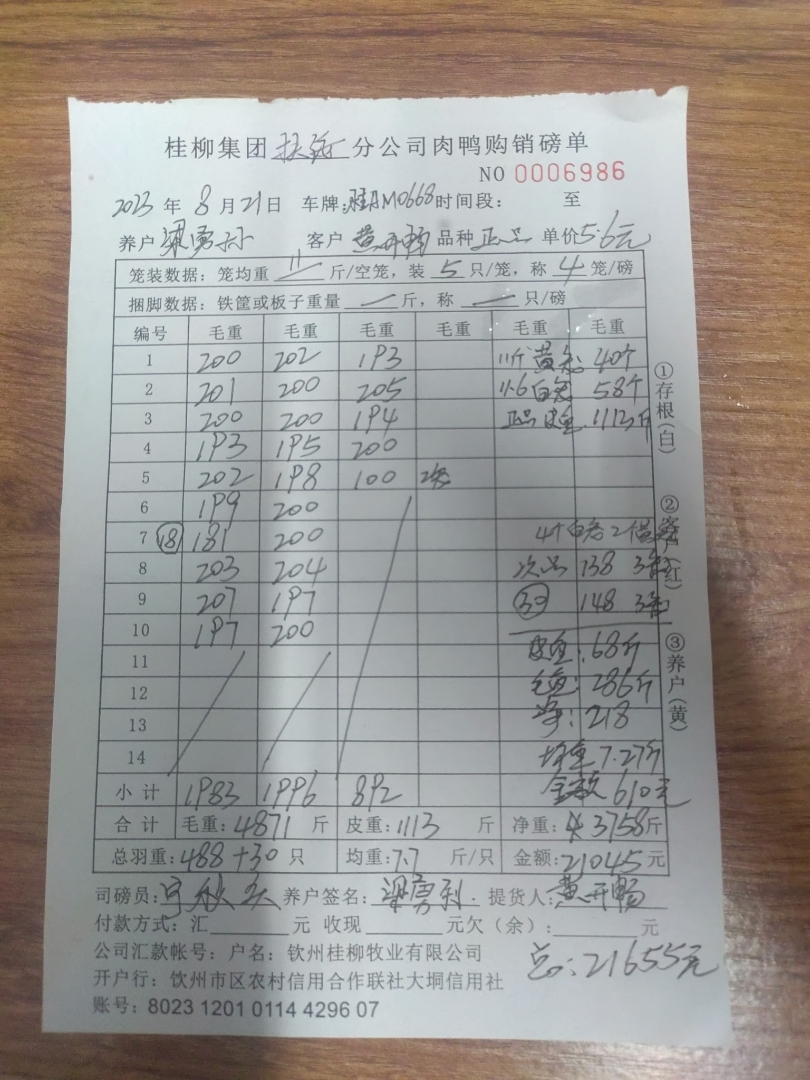 桂柳集团 扶绥 分公司肉鸭购销磅单
NO 0006986
2023 年 8 月 21 日 车牌: 桂AM0668 时间段: 至
养户 梁勇利 客户 黄开畅 品种 正品 单价 5.6元
笼装数据: 笼均重 11 斤/空笼, 装 5 只/笼, 称 4 笼/磅
捆脚数据: 铁筐或板子重量 — 斤, 称 — 只/磅
编号 毛重 毛重 毛重 毛重 毛重 毛重
1 200 202 193 11斤黄笼 40个
2 201 200 205 11.6白笼 58个
3 200 200 194 正品皮重 1113斤
4 193 195 200
5 202 198 100 2笼
6 199 200
7 ⑱ 181 200 4个白笼2个黄笼
8 203 204 次品 138 3笼
9 207 197 ㉚ 148 3笼
10 197 200 皮重: 68斤
11 毛重: 286斤
12 净: 218
13 均重 7.27斤
14 金额 610元
小计 1983 1996 892
合计 毛重: 4871 斤 皮重: 1113 斤 净重: 3758 斤
总羽重: 488+30 只 均重: 7.7 斤/只 金额: 21045 元
司磅员: 养户签名: 梁勇利 提货人: 黄开畅
付款方式: 汇 元 收现 元欠(余): 元
公司汇款帐号: 户名: 钦州桂柳牧业有限公司
总: 21655元
开户行: 钦州市区农村信用合作联社大垌信用社
账号: 8023 1201 0114 4296 07
①存根(白)
②客户(红)
③养户(黄)